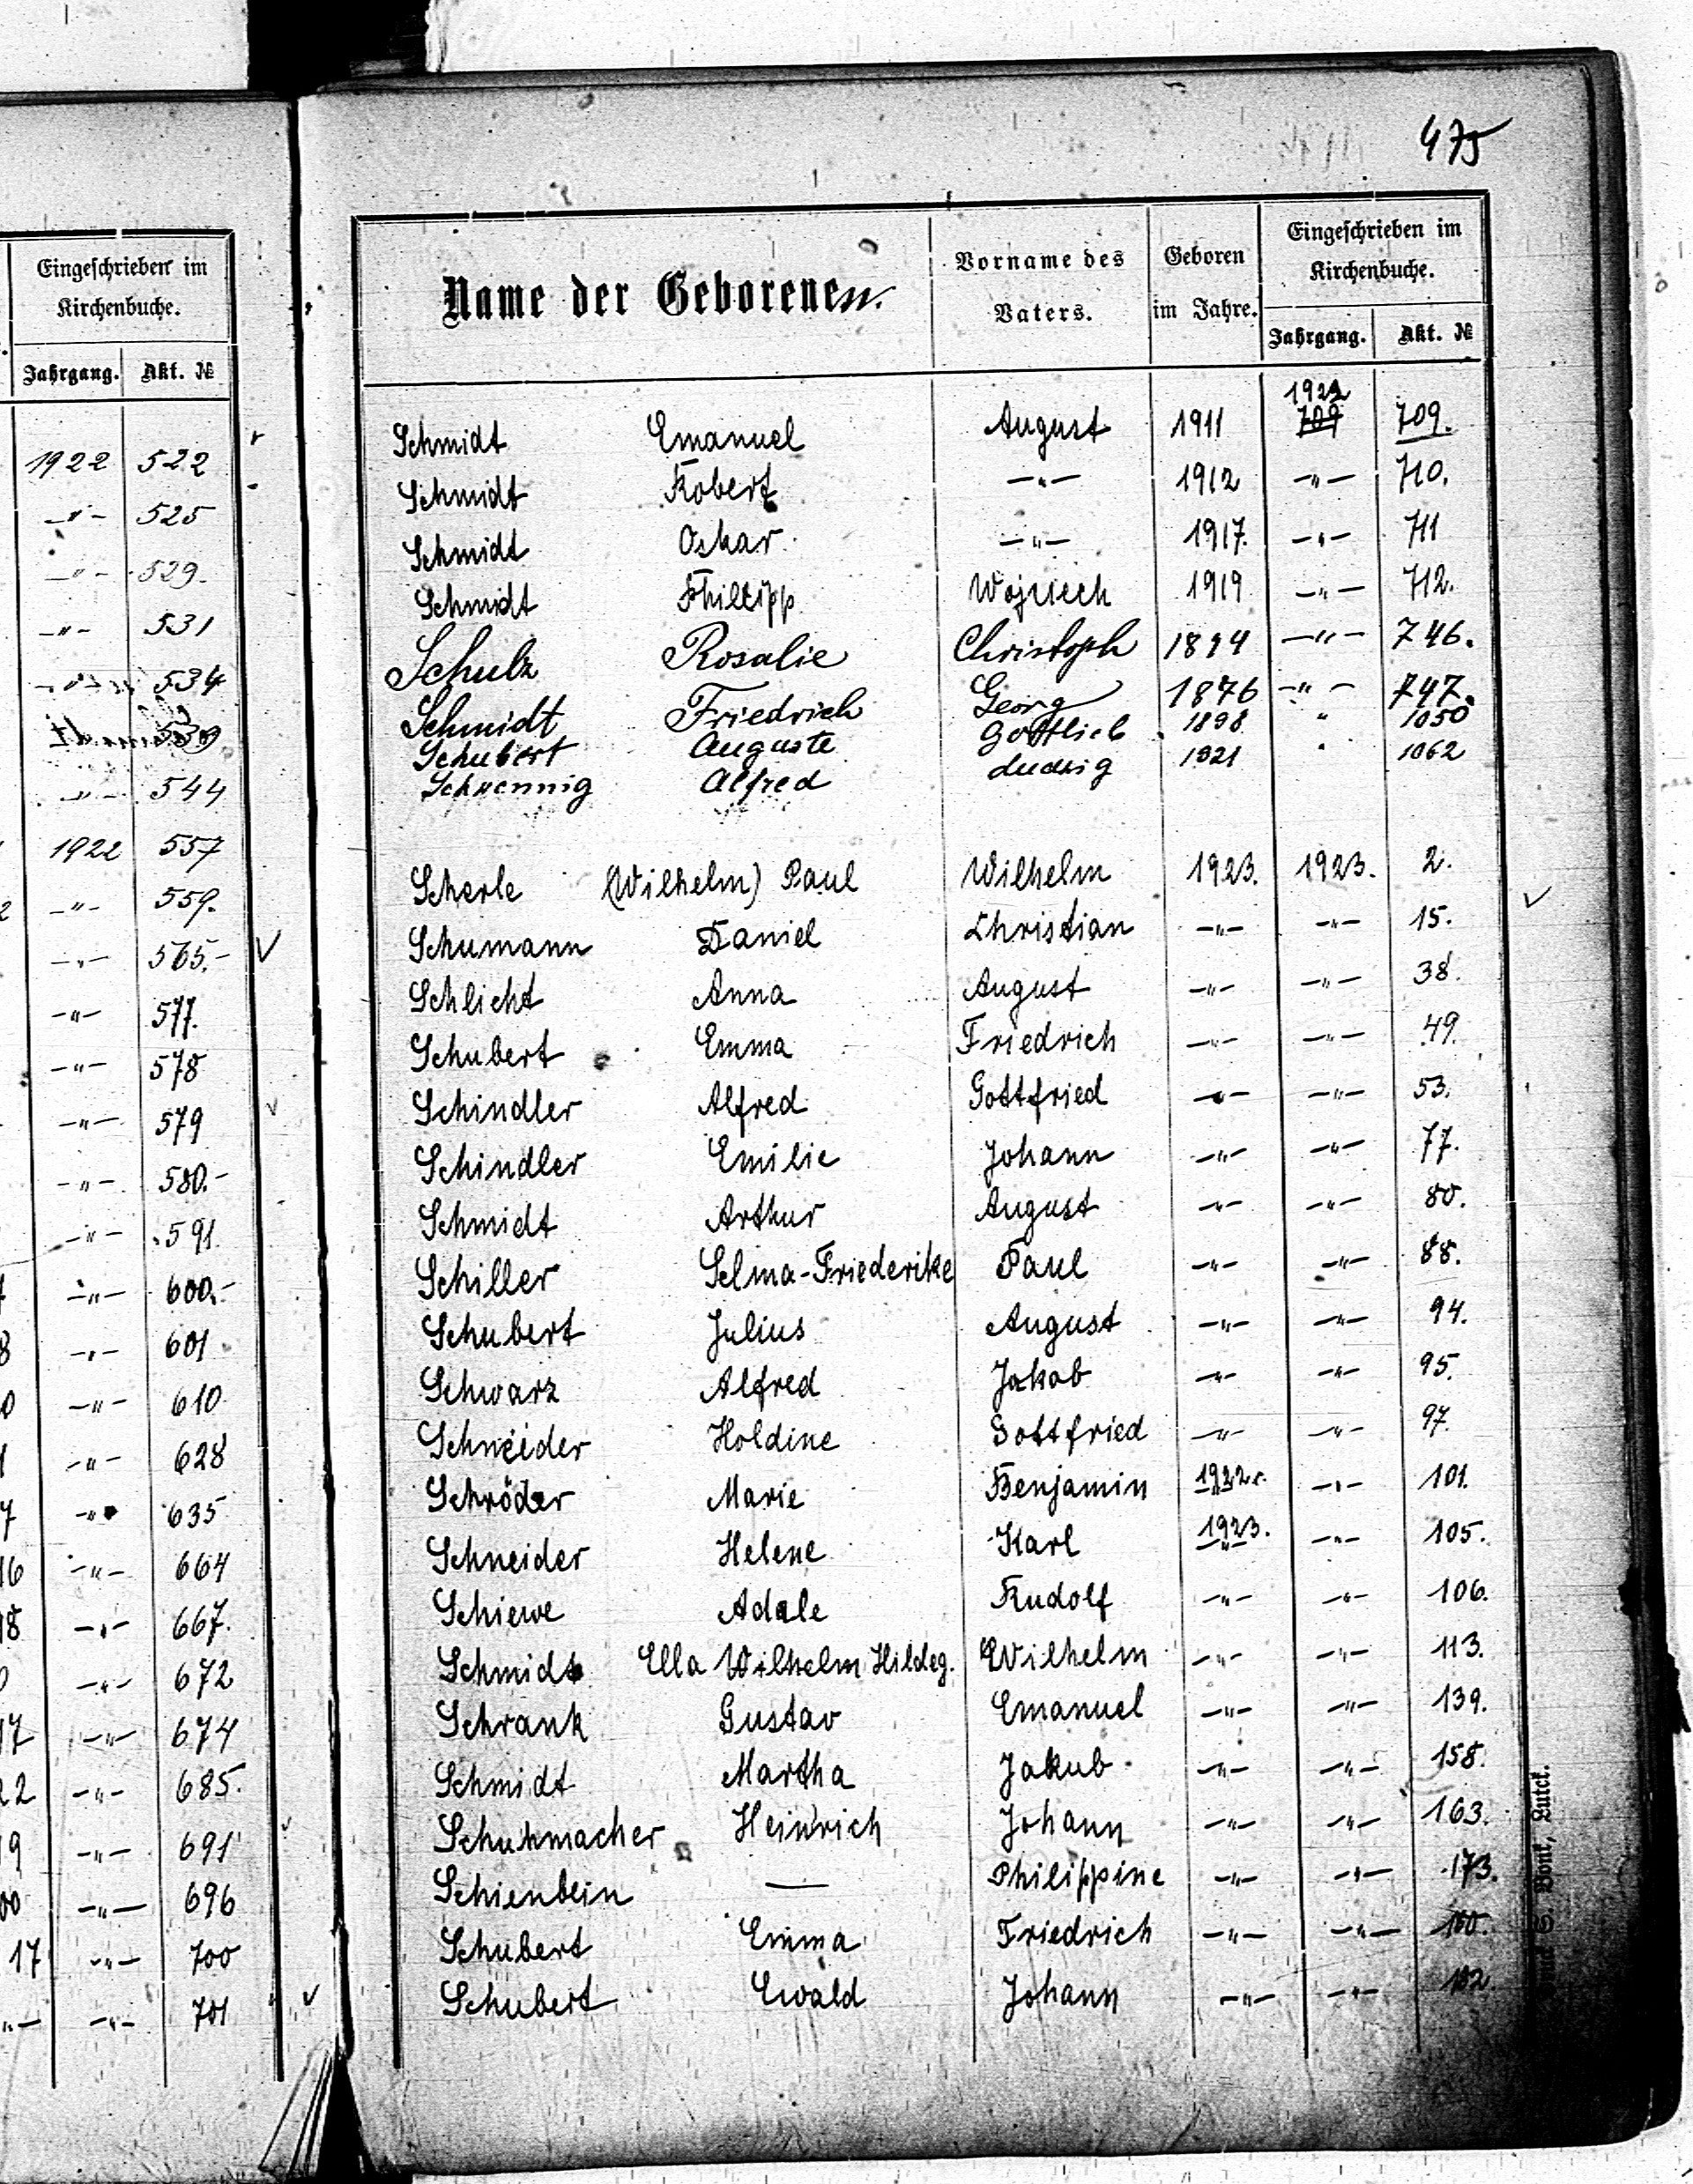 Eingeschrieben im
Kirchenbuche.
Jahrgang. Akt. №
1922 522
-"- 525
-"- 529.
-"- 531
-"- 534
539
-"- 544
1922 557
-"- 559.
-"- 565.-
-"- 577.
-"- 578
-"- 579
-"- 580.-
-"- 591.
-"- 600.-
-"- 601
-"- 610
-"- 628
-"- 635
-"- 664
-"- 667.
-"- 672
-"- 674
-"- 685.
-"- 691
-"- 696
17 -"- 700
-"- -"- 701
475
Name der Geborenen.
Vorname des Vaters.
Geboren im Jahre.
Eingeschrieben im Kirchenbuche.
Jahrgang. Akt. №
Schmidt Emanuel August 1911 1922 709 709.
Schmidt Robert -"- 1912 -"- 710.
Schmidt Oskar -"- 1917. -"- 711
Schmidt Philipp Wojciech 1919 -"- 712.
Schulz Rosalie Christoph 1894 -"- 746.
Schmidt Friedrich Georg 1876 -"- 747.
Schubert Auguste Gottlieb 1898 " 1050
Schwennig Alfred Ludwig 1921 " 1062
Scherle (Wilhelm) Paul Wilhelm 1923. 1923. 2.
Schumann Daniel Christian -"- -"- 15.
Schlicht Anna August -"- -"- 38.
Schubert Emma Friedrich -"- -"- 49.
Schindler Alfred Gottfried -"- -"- 53.
Schindler Emilie Johann -"- -"- 77.
Schmidt Arthur August -"- -"- 80.
Schiller Selma-Friederike Paul -"- -"- 88.
Schubert Julius August -"- -"- 94.
Schwarz Alfred Jakob -"- -"- 95.
Schneider Holdine Gottfried -"- -"- 97.
Schröder Marie Benjamin 1922 r. -"- 101.
Schneider Helene Karl 1923. -"- 105.
Schiewe Adele Rudolf -"- -"- 106.
Schmidt Ella Wilhelm Hildeg. Wilhelm -"- -"- 113.
Schrank Gustav Emanuel -"- -"- 139.
Schmidt Martha Jakub -"- -"- 158.
Schuhmacher Heinrich Johann -"- -"- 163.
Schienbein — Philippine -"- -"- 173.
Schubert Emma Friedrich -"- -"- 180.
Schubert Ewald Johann -"- -"- 182.
Luck.